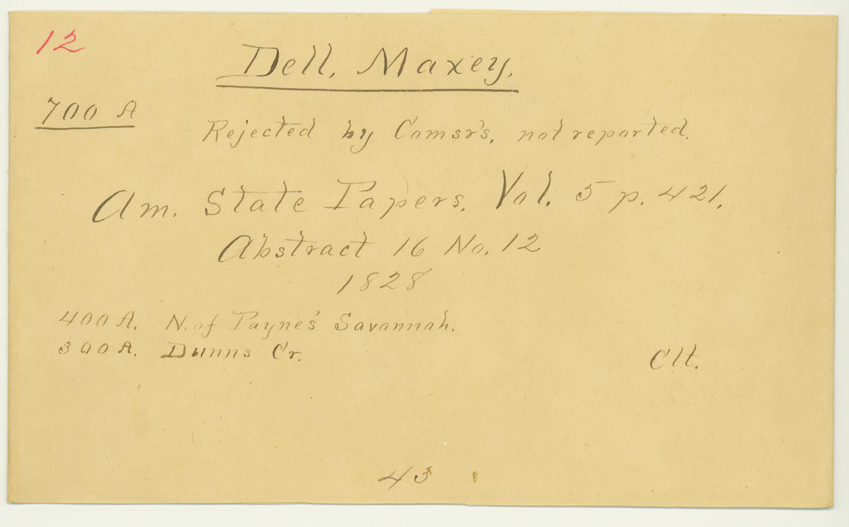 12
Dell, Maxey.
700 A
Rejected by Comsr's, not reported.
Am. State Papers. Vol. 5 p. 421.
Abstract 16 No. 12
1828
400 A. N. of Paynes' Savannah.
300 A. Dunns Cr.
Clt.
43